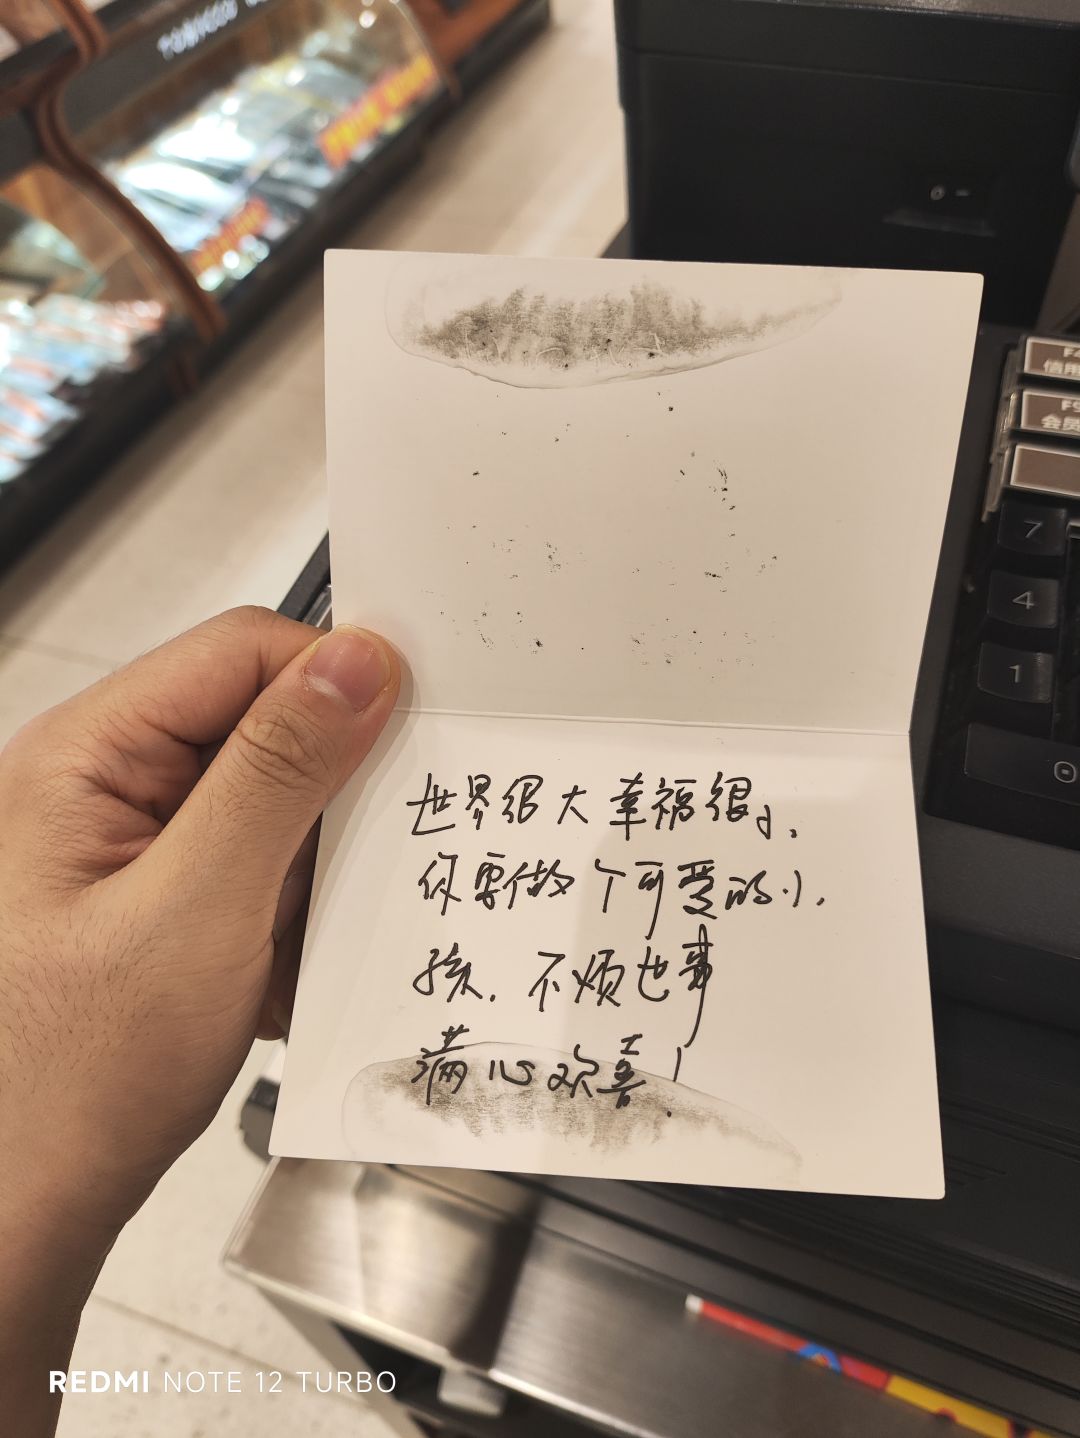 世界很大 幸福很小、
你要做个可爱的小、
孩. 不烦世事
满心欢喜！
F4
信用
F5
会员
7
4
1
0
REDMI NOTE 12 TURBO